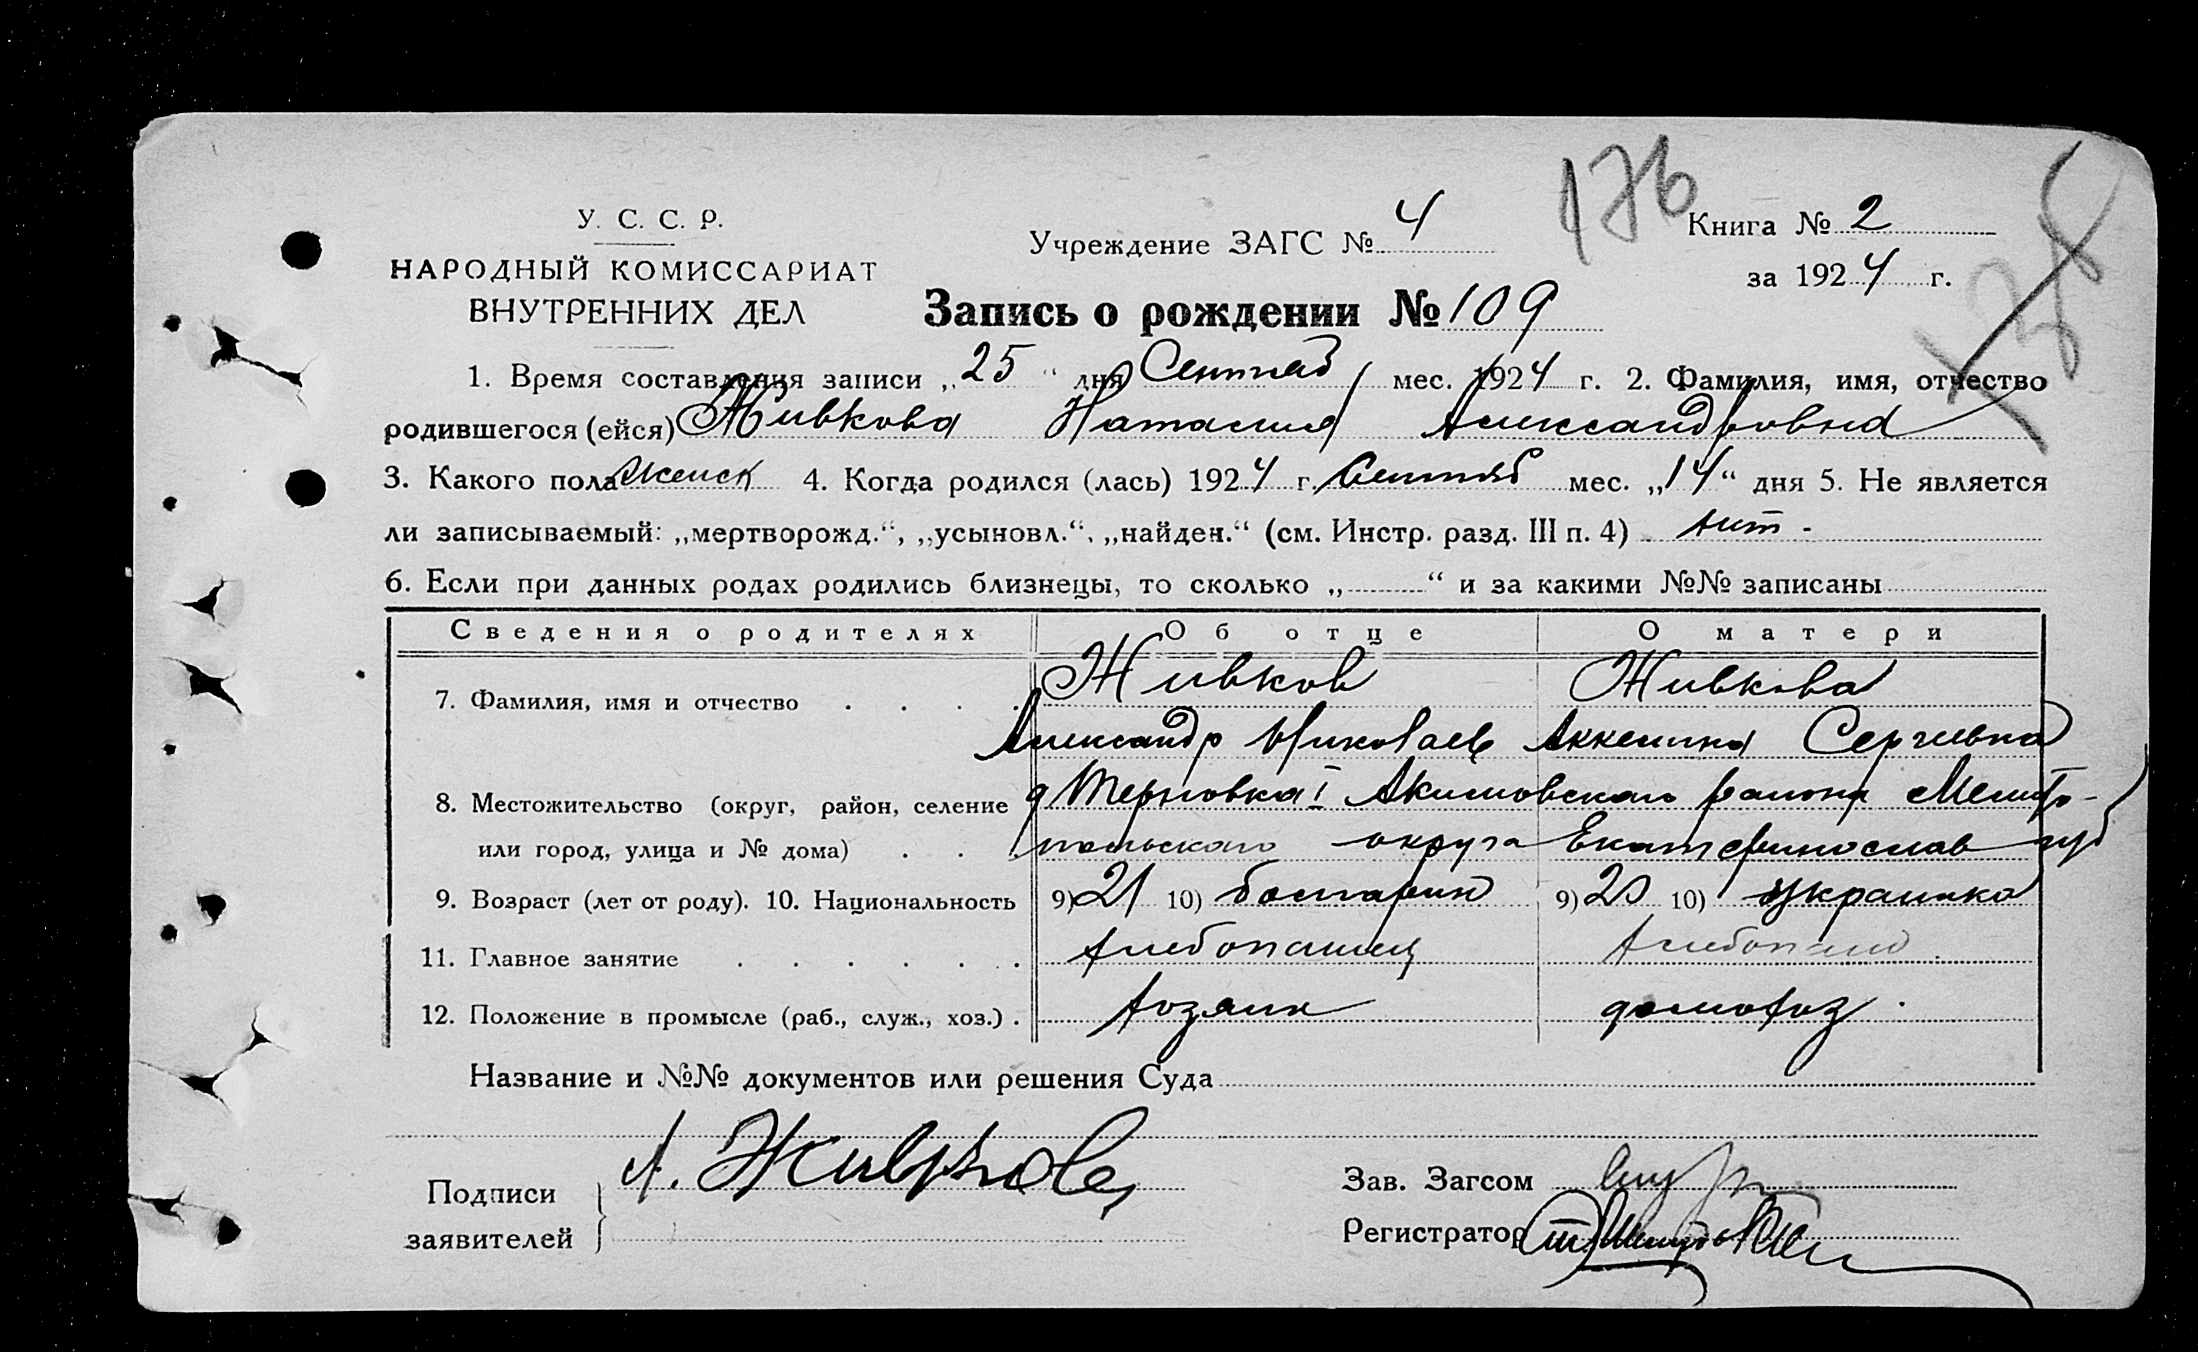 176
У. С. С. Р.
НАРОДНЫЙ КОМИССАРИАТ
ВНУТРЕННИХ ДЕЛ
Учреждение ЗАГС № 4
Книга № 2
за 1924 г.
Запись о рождении № 109
1. Время составления записи „25“ дня Сентяб мес. 1924 г. 2. Фамилия, имя, отчество
родившегося (ейся) Живкова Наталия Александровна
3. Какого пола женск 4. Когда родился (лась) 1924 г. Сентяб мес. „14“ дня 5. Не является
ли записываемый: „мертворожд.“, „усыновл.“, „найден.“ (см. Инстр. разд. III п. 4)
6. Если при данных родах родились близнецы, то сколько „ “ и за какими №№ записаны
Сведения о родителях Об отце О матери
7. Фамилия, имя и отчество Живков Живкова
Александр Николаев Аксенина Сергиевна
8. Местожительство (округ, район, селение д Терновка I Акимовского района Мелито-
или город, улица и № дома) польского округа Екатеринослав губ
9. Возраст (лет от роду). 10. Национальность 9) 21 10) болгарин 9) 20 10) украинка
11. Главное занятие хлебопашец хлебопаш
12. Положение в промысле (раб., служ., хоз.) хозяин домохоз.
Название и №№ документов или решения Суда
Подписи
заявителей
А. Живков
Зав. Загсом
Регистратор